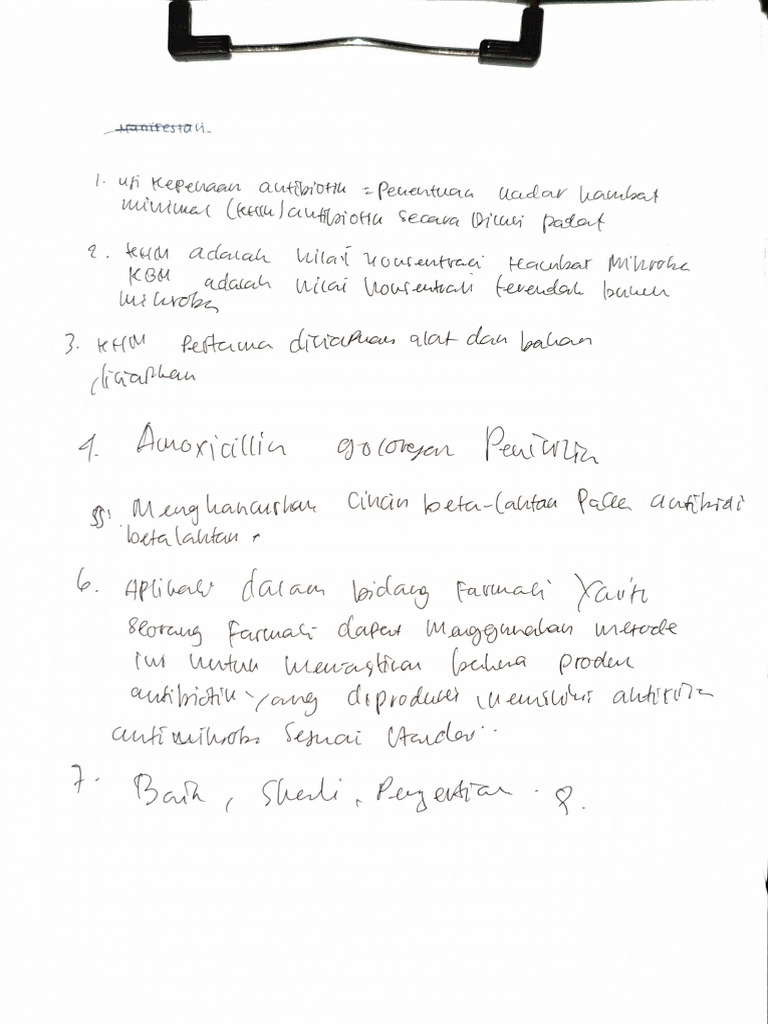 Manifestasi
1. Uji Kepekaan antibiotik = Penentuan kadar hambat
minimal (KHM) antibiotik secara Dilusi padat
2. KHM adalah nilai konsentrasi Hambat Mikroba
KBM adalah nilai konsentrasi terendah bunuh
mikroba
3. KHM Pertama disiapkan alat dan bahan
disiapkan
4. Amoxicillin golongan Penicilin
5. Menghancurkan cincin beta-laktam Pada
betalaktam.
6. Aplikasi dalam bidang Farmasi Yaitu
seorang Farmasi dapat Menggunakan metode
ini untuk memastikan bahwa produk
antibiotik yang diproduksi memiliki
antimikroba sesuai standar..
7. Baik, Sherli, Pengertian.